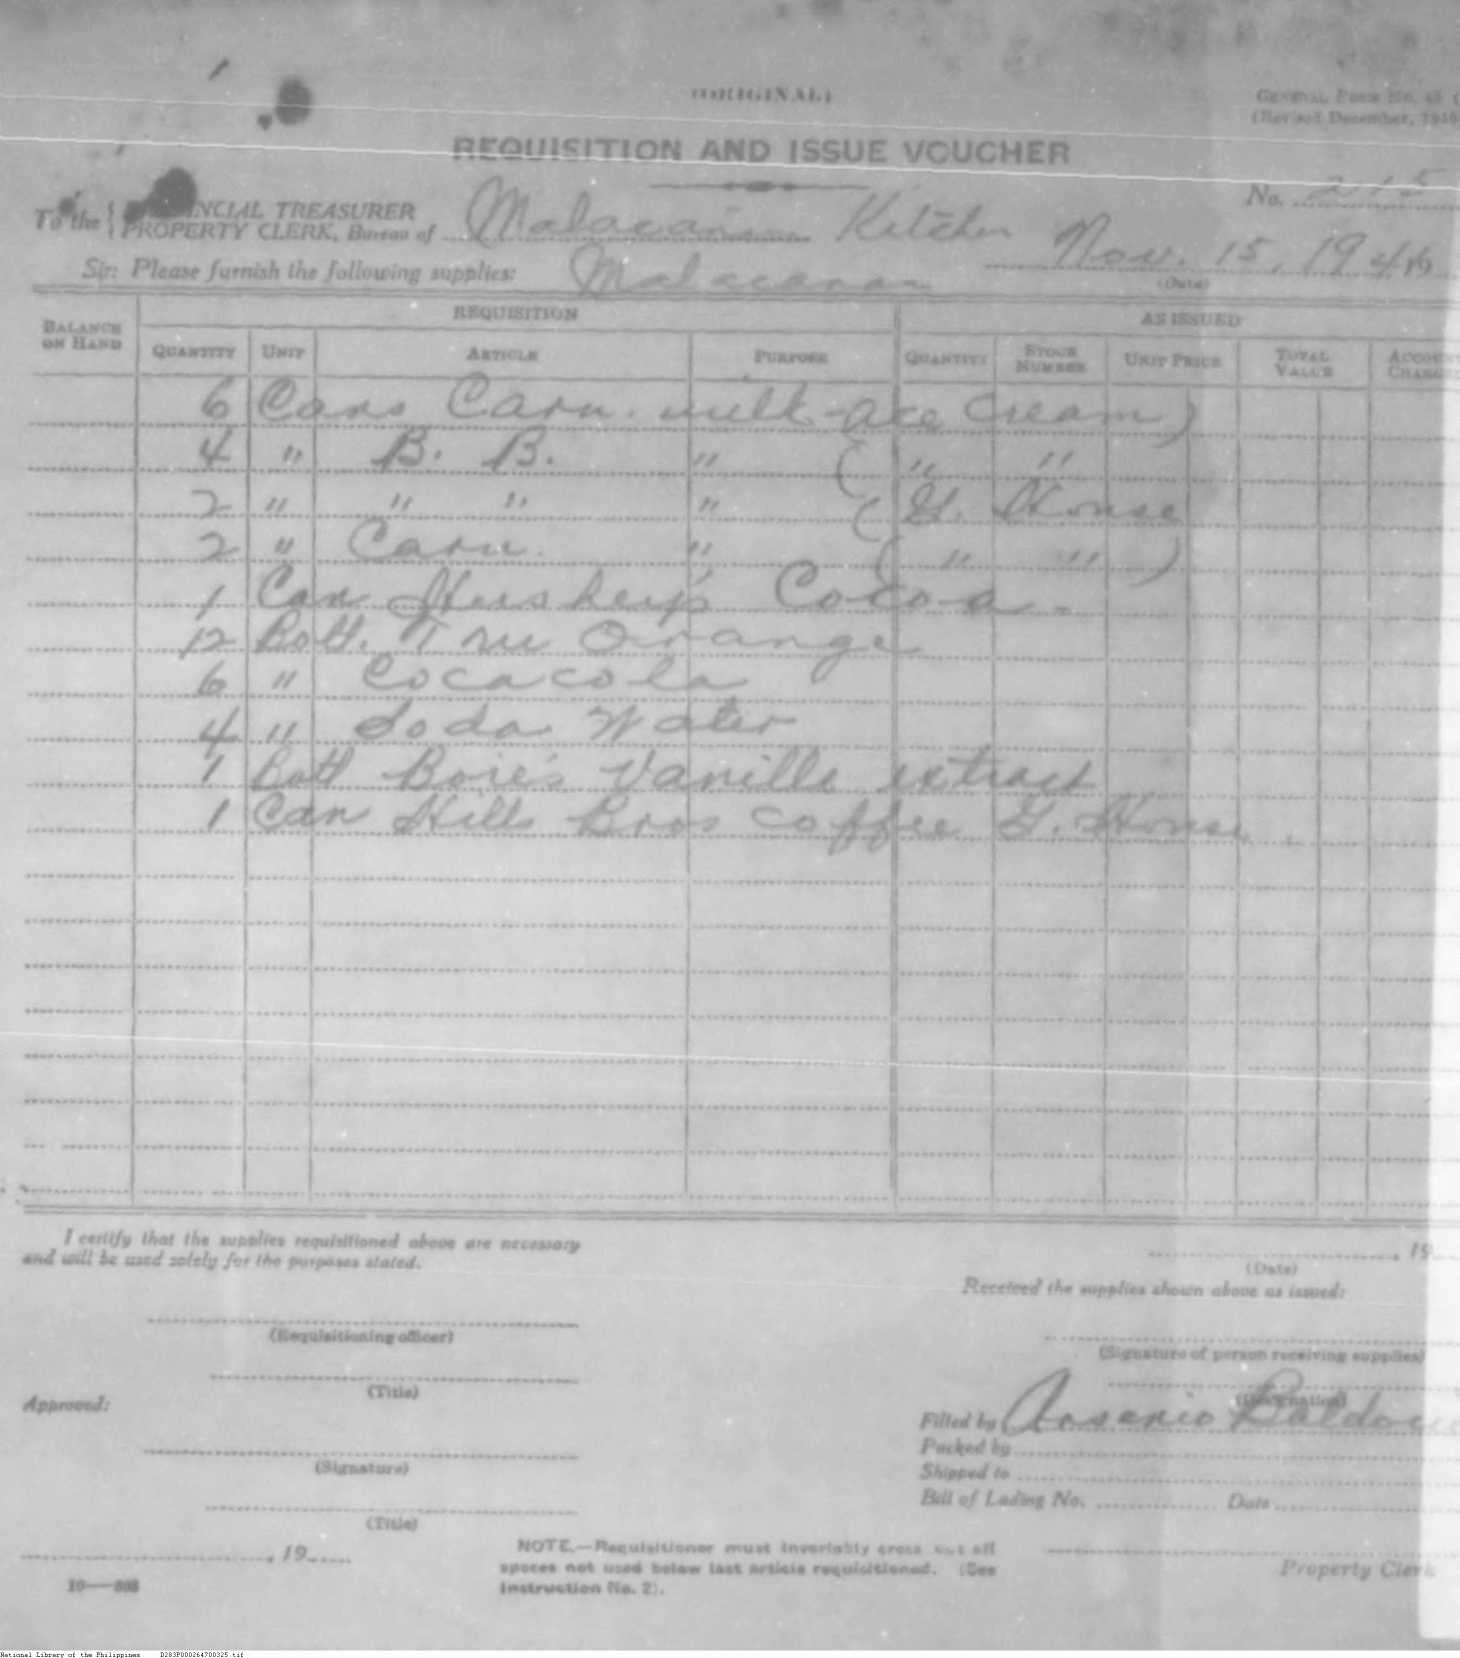 (ORIGINAL)
GENERAL FORM No. 45
(Revised December, 1910
REQUISITION AND ISSUE VOUCHER
No. 215
To the { PROVINCIAL TREASURER
PROPERTY CLERK, Bureau of Malacanan Kitchen
Nov. 15, 1946 19
Sir: Please furnish the following supplies: Malacanan
(Date)
REQUISITION AS ISSUED
BALANCE ON HAND QUANTITY UNIT ARTICLE PURPOSE QUANTITY STOCK NUMBER UNIT PRICE TOTAL VALUE ACCOUNT CHARGED
6 Cans Carn. milk - Ice Cream)
4 " B. B. " ( " "
2 " " " " ( G. House
2 " Carn. " ( " " )
1 Can Hershey's Cocoa.
12 Bott. Tru Orange
6 " Cocacola
4 " Soda Water
1 Bott Boie's Vanilla extract
1 Can Hills Bros coffee G. House.
I certify that the supplies requisitioned above are necessary
and will be used solely for the purposes stated.
, 19
(Date)
Received the supplies shown above as issued:
(Requisitioning officer)
(Signature of person receiving supplies)
(Title)
(Designation)
Approved:
Filled by Arsenio
Packed by
(Signature)
Shipped to
Bill of Lading No. Date
(Title)
, 19
NOTE.—Requisitioner must invariably cross out all
spaces not used below last article requisitioned. (See
Instruction No. 2).
Property Clerk
National Library of the Philippines D283P000264700325.tif